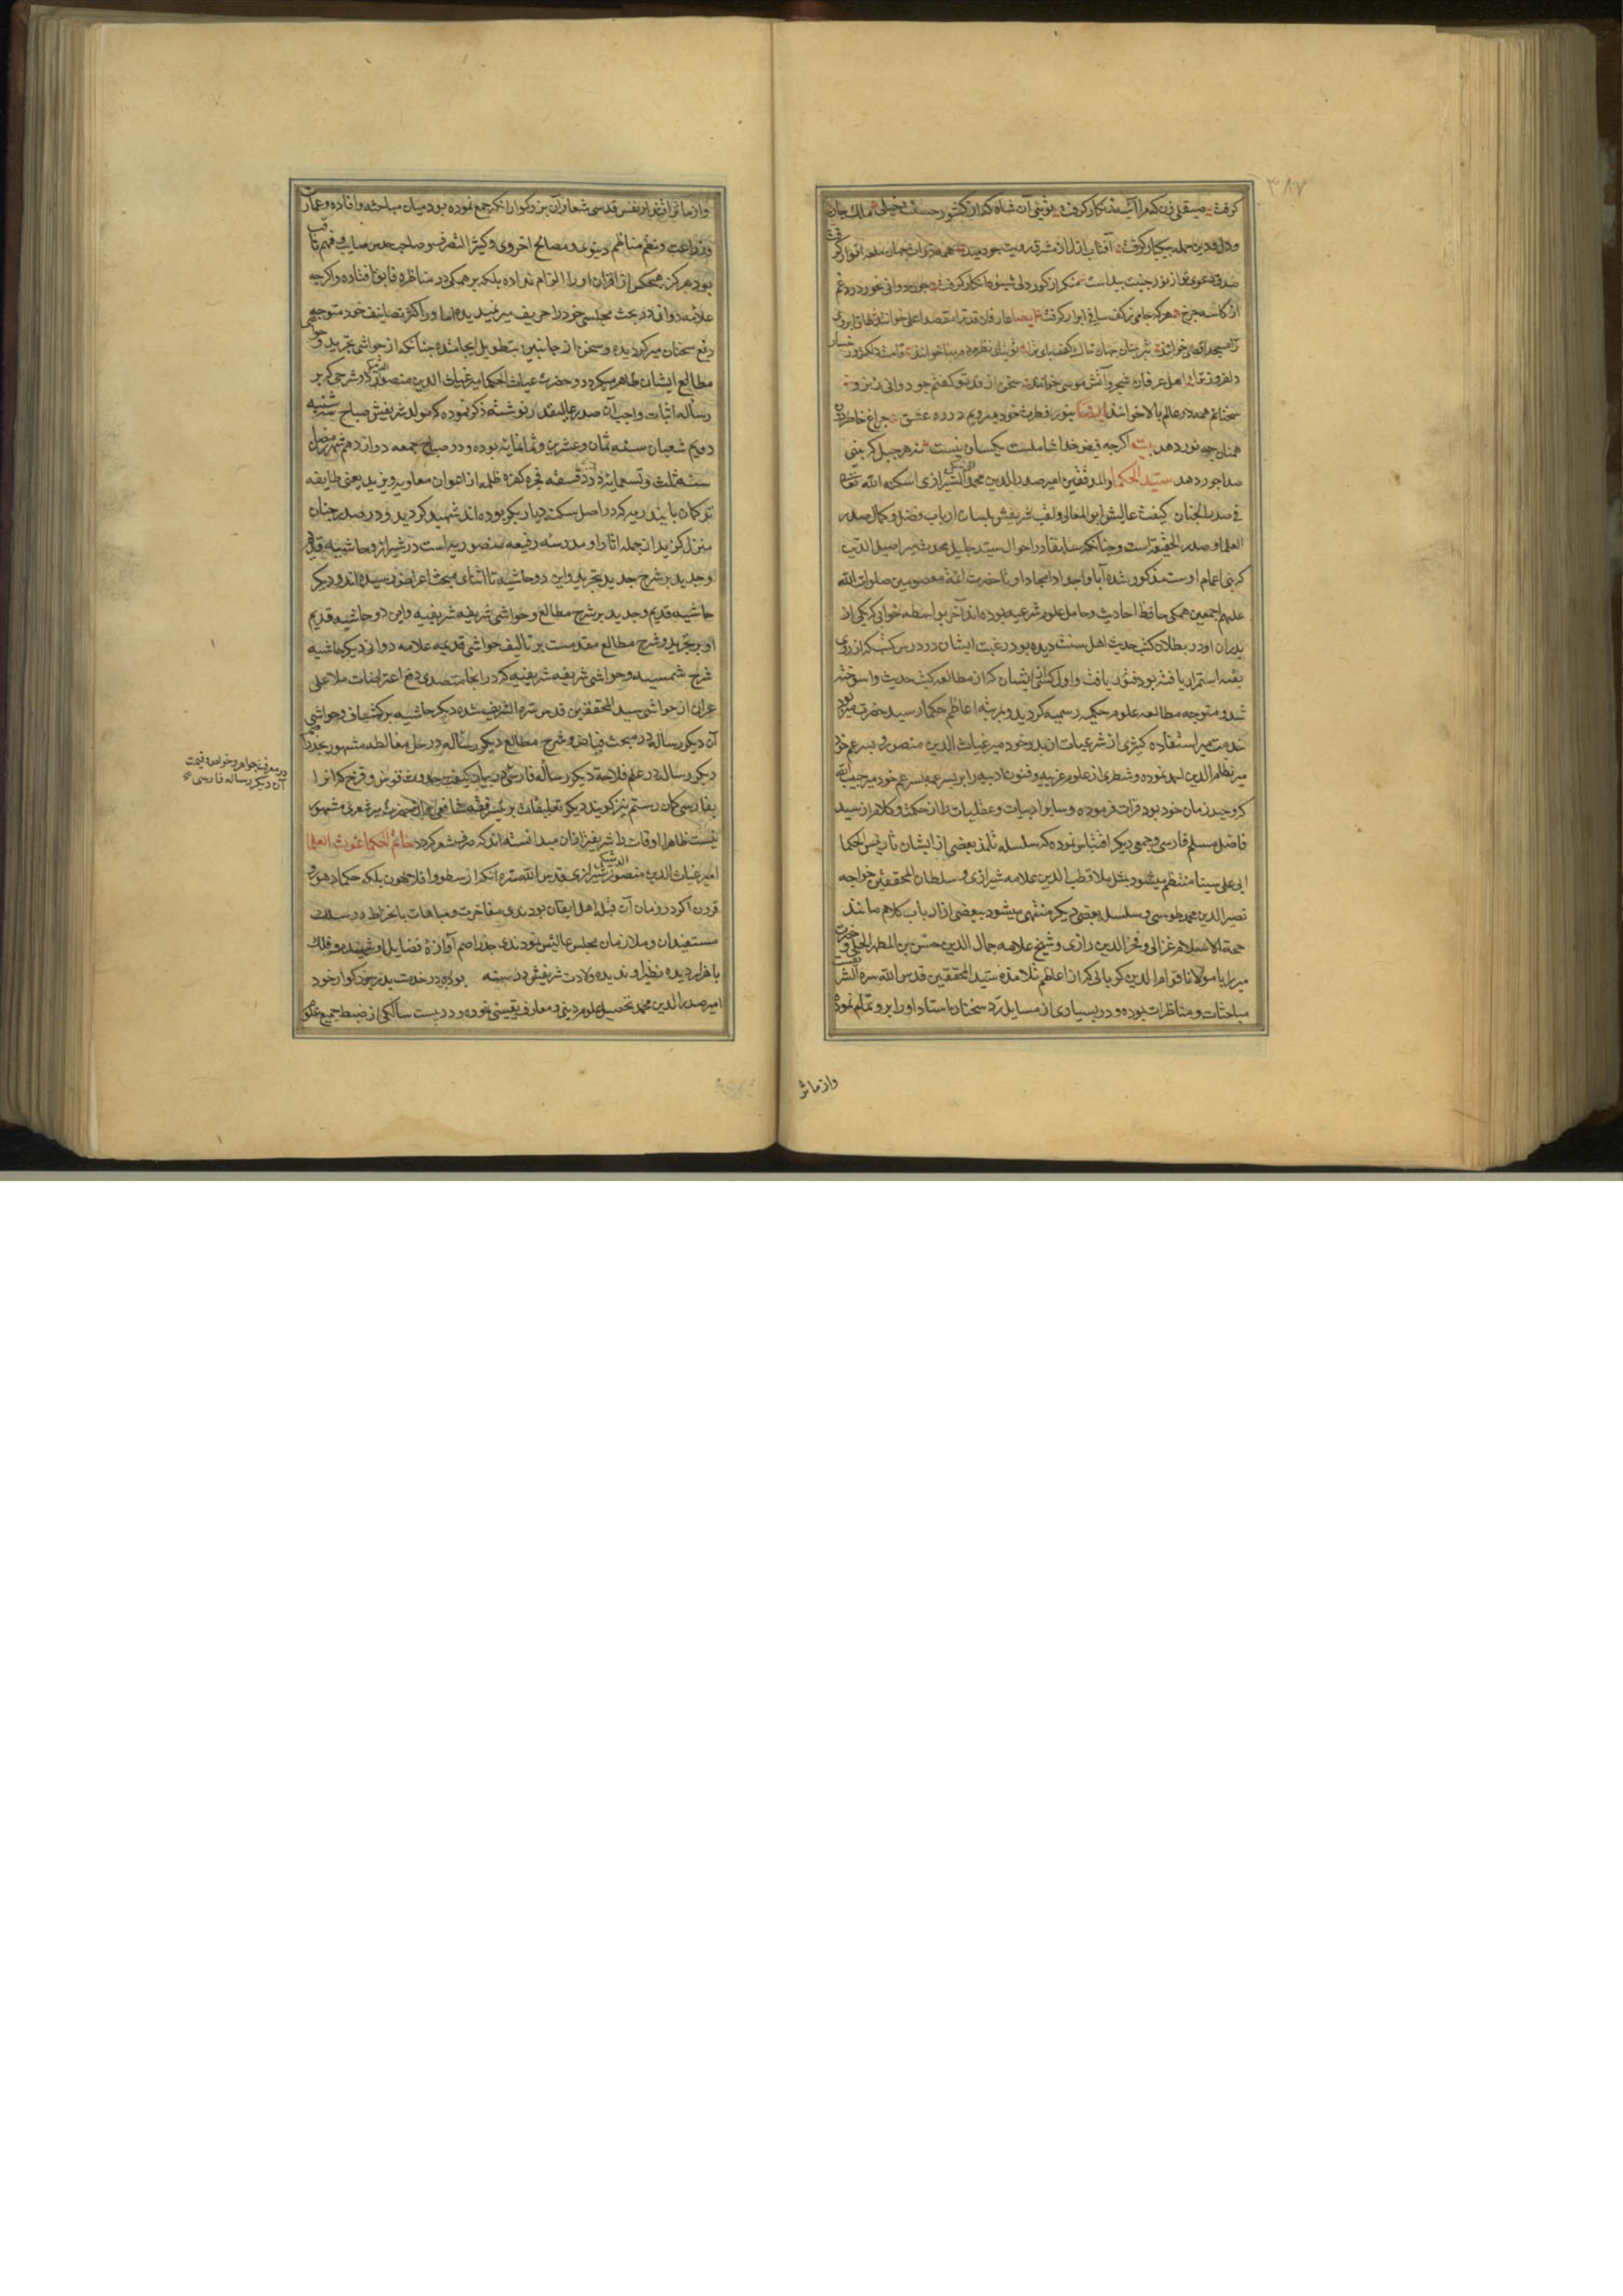 ۳۸۷
کرفت صیقلی زن که مرا آینه زنکار کرفت تو نیی آن شاه که از کشور حسنت خیلی ملک جان
و دل و دین جمله بیکبار کرفت آفتاب ازل از مشرق رویت چو دمید همه ذرات جهان انوار کرفت
صدق دعوی تو از نور جبینت پیداست منکر از کور دلی شیوه انکار کرفت دوانی نخورد دردی غم
از کاسه چرخ هر که جامی ز کف ساقی ابرار کرفت ایضا عارفان قد ترا مقصد اعلی خوانند طاق ابروی
ترا مسجد اقصی خوانند
دلفروز ترا اهل عرفان شجر و آتش موسی خوانند سخنی از قد تو کفتم چو دوانی
سخنانم همه در عالم بالا خوانند ایضا بنور فطرت خود میرویم در ره عشق چراغ خاطر
همان چه نور دهد بیت اکرچه فیض خدا شاملست یکسان نیست ز هر جبل که بینی
صدا چو ر دهد سید الحکما والمدققین امیر صدر الدین محمد الدشتکی الشیرازی اسکنه الله تعالی
فی صدر الجنان کنیت عالیش ابو المعالی و لقب شریفش بلسان ارباب فضل و کمال صدر
العلما و صدر الحقیقه است و چنانکه سابقا در احوال سید جلیل محدث میر اصیل الدین
که بنی اعمام اوست مذکور شده آبا و اجداد امجاد او تا حضرت ائمه معصومین صلوات الله
علیهم اجمعین همکی حافظ احادیث و حامل علوم شرعیه بوده اند آخر بواسطه خوابی که یکی از
پدران او در بطلان کتب حدیث اهل سنت دیده بود رغبت ایشان در درس کتب که از روی
تقیه استمرار یافته بود فتور یافت و اول کسی از ایشان که از مطالعه کتب حدیث واسوخته
شد و متوجه مطالعه علوم حکمیه رسمیه کردید و بمرتبه اعاظم حکما رسید حضرت میر بود
خدمت میر استفاده کثیری از شرعیات از پدر خود میر غیاث الدین منصور و پسر عم خود
میر نظام الدین احمد نموده و شطری از علوم عربیه و فنون ادبیه را بر پسر عمه پسر عم خود میر حبیب الله
که وحید زمان خود بود قرات فرموده و سایر ادبیات و عقلیات را از حکمت و کلام از سید
فاضل مسلم فارسی و جمعی دیکر اقتباس نموده که سلسله تلمذ بعضی از ایشان تا رئیس الحکما
ابی علی سینا منتظم میشود مثل ملا قطب الدین علامه شیرازی و سلطان المحققین خواجه
نصیر الدین محمد طوسی و سلسله بعضی دیکر منتهی میشود ببعضی از ارباب کلام مانند
حجة الاسلام غزالی و فخر الدین رازی و شیخ علامه جمال الدین حسن بن المطهر الحلی و حضرت
میر را با مولانا قوام الدین کربالی که از اعاظم تلامذه سید المحققین قدس الله سره الشریف است
مباحثات و مناظرات بوده و در بسیاری از مسایل رد سخنان استاد او را برو تمام نموده
واز ماثر
واز ماثر آثار نفس قدسی شعار آن بزرکوار آنکه جمع نموده بود میان مباحثه و افاده و عمارت
و زراعت و نظم مناظم دنیوی و مصالح اخروی و کثیر التصرف و صاحب حدس صایب و فهم ثاقب
بود هرکز هیچکس از اقران او را الزام نداده بلکه بر همکی در مناظره فایق افتاده و اکرچه
علامه دوانی در بحث مجلسی خود را حریف میر نمیدیده اما در اکثر تصانیف خود متوجه
دفع سخنان میر کردیده و سخن از جانبین بتطویل انجامیده چنانکه از حواشی تجرید و حواشی
مطالع ایشان ظاهر میکردد و حضرت غیاث الحکما میر غیاث الدین منصور الدشتکی در شرحی که بر
رساله اثبات واجب آن صدر عالیقدر نوشته ذکر نموده که مولد شریفش صباح سه شنبه
دویم شعبان سنه ثمان و عشرین و ثمانمائه بوده و در صباح جمعه دوازدهم شهر رمضان
سنه ثلث و تسعمایه در دست فسقه فجره کفره ظلمه از اعوان معاویه و یزید یعنی طایفه
ترکمان بایندریه که در اصل سکنه دیار بکر بوده اند شهید کردید و در صدر جنان
منزل کزید از جمله آثار او مدرسه رفیعه منصوریه است در شیراز و حاشیه قدیم
و جدید بر شرح جدید تجرید و این دو حاشیه تا اثنای مبحث اعراض رسیده اند و دیکر
حاشیه قدیم و جدید بر شرح مطالع و حواشی شریفه شریفیه و این دو حاشیه قدیم
او بر تجرید و شرح مطالع مقدمست بر تالیف حواشی قدیمه علامه دوانی دیکر حاشیه
شرح شمسیه و حواشی شریفه شریفیه که در آنجا متصدی دفع اعتراضات ملا علی
عران از حواشی سید المحققین قدس سره الشریف شده دیکر حاشیه بر کشاف و حواشی
آن دیکر رساله در مبحث و شرح مطالع دیکر رساله در حل مغالطه مشهور بجذر اصم
دیکر رساله در علم فلاحة دیکر رساله فارسی در بیان کیفیت حدوث قوس و قزح که آنرا
بفارسی کمان رستم نیز کویند دیکر تعلیقات بر تیسیر فقه شافعی اما از حضرت میر شعری مشهور
نیست ظاهرا اوقات را شریفتر از آن میدانسته اند که صرف شعر کردد خاتم الحکما غوث العلما
امیر غیاث الدین منصور الدشتکی شیرازی قدس الله سره آنکه ارسطو و افلاطون بلکه حکماء دهور
قرون اکر در زمان آن قبله اهل ایقان بودندی مفاخرت و مباهات بانخراط در سلک
مستفیدان و ملازمان مجلس عالیش نمودندی جذر اصم آوازه فضایل او شنیده و فلک
با هزار دیده نظیر او ندیده ولادت شریفش در سنه بوده در خدمت پدر بزرکوار خود
امیر صدر الدین محمد تحصیل علوم دینی و معارف یقینی نموده و در بیست سالکی از ضبط جمیع علوم
در معرفت جواهر و خواص و قیمت
آن دیکر رساله فارسی